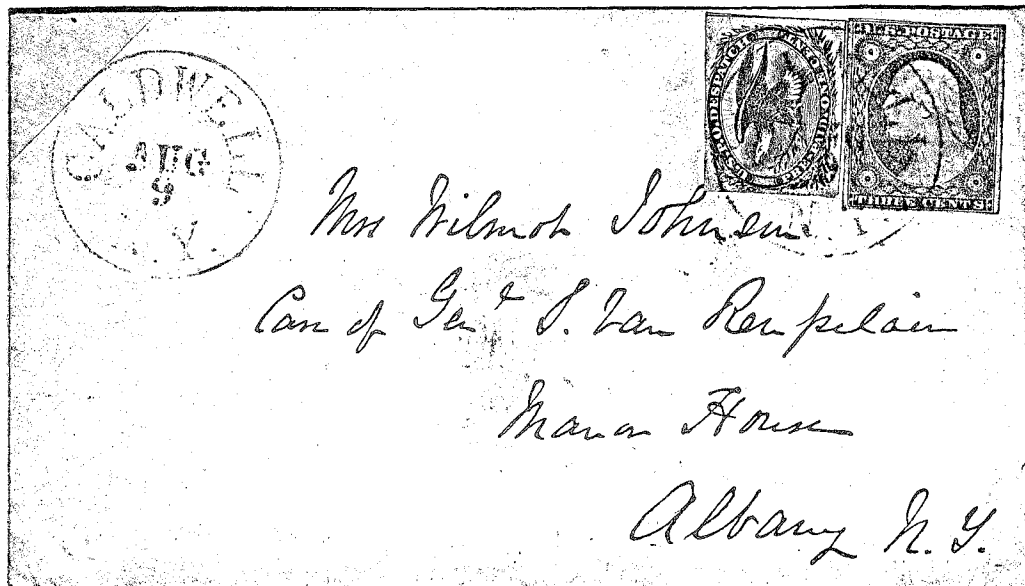 CALDWELL
AUG
9
. Y.
U.S. POSTAGE
THREE CENTS
Mrs Wilmot Johnson
Care of Genl S. Van Rensselaer
Manor House
Albany N. Y.